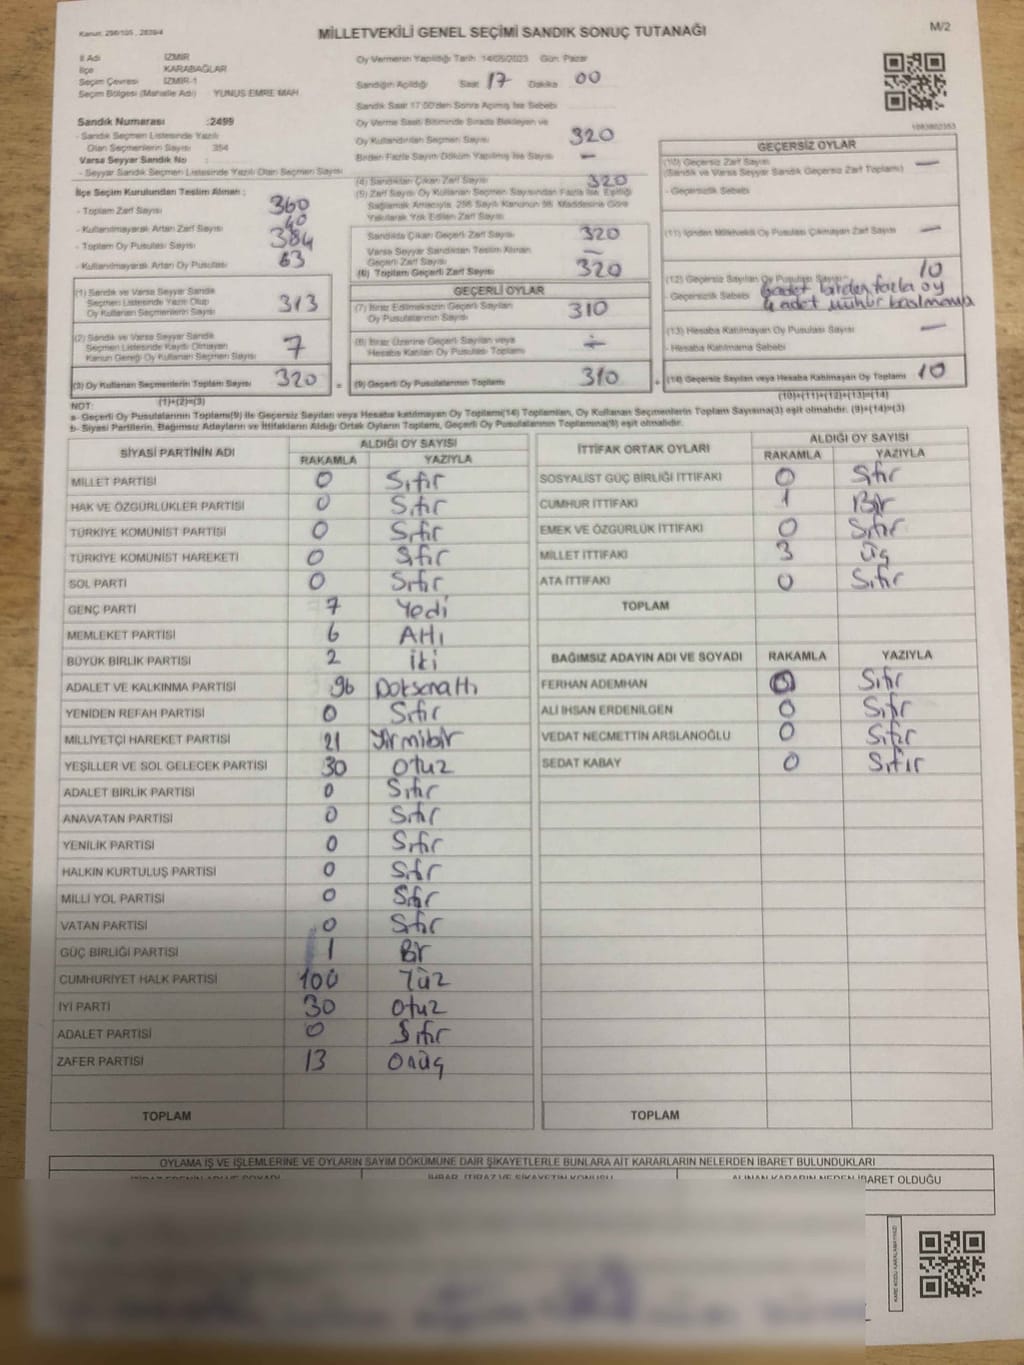 Kanun: 298/105 , 2839/4
MİLLETVEKİLİ GENEL SEÇİMİ SANDIK SONUÇ TUTANAĞI
M/2
İl Adı İZMİR
İlçe KARABAĞLAR
Seçim Çevresi İZMİR-1
Seçim Bölgesi (Mahalle Adı) YUNUS EMRE MAH.
Sandık Numarası :2499
- Sandık Seçmen Listesinde Yazılı
Olan Seçmenlerin Sayısı 354
Varsa Seyyar Sandık No :
- Seyyar Sandık Seçmen Listesinde Yazılı Olan Seçmen Sayısı
İlçe Seçim Kurulundan Teslim Alınan ;
- Toplam Zarf Sayısı 360
- Kullanılmayarak Artan Zarf Sayısı 40
- Toplam Oy Pusulası Sayısı 384
- Kullanılmayarak Artan Oy Pusulası 63
(1) Sandık ve Varsa Seyyar Sandık
Seçmen Listesinde Yazılı Olup
Oy Kullanan Seçmenlerin Sayısı 313
(2) Sandık ve Varsa Seyyar Sandık
Seçmen Listesinde Kaydı Olmayan
Kanun Gereği Oy Kullanan Seçmen Sayısı 7
(3) Oy Kullanan Seçmenlerin Toplam Sayısı 320 =
(1)+(2)=(3)
Oy Vermenin Yapıldığı Tarih 14/05/2023 Gün: Pazar
Sandığın Açıldığı Saat 17 Dakika 00
Sandık Saat 17:00'den Sonra Açılmış İse Sebebi
Oy Verme Saati Bitiminde Sırada Bekleyen ve
Oy Kullandırılan Seçmen Sayısı 320
Birden Fazla Sayım Döküm Yapılmış İse Sayısı —
(4) Sandıktan Çıkan Zarf Sayısı 320
(5) Zarf Sayısı Oy Kullanan Seçmen Sayısından Fazla İse, Eşitliği
Sağlamak Amacıyla, 298 Sayılı Kanunun 98. Maddesine Göre
Yakılarak Yok Edilen Zarf Sayısı
Sandıkta Çıkan Geçerli Zarf Sayısı 320
Varsa Seyyar Sandıktan Teslim Alınan
Geçerli Zarf Sayısı —
(6) Toplam Geçerli Zarf Sayısı 320
GEÇERLİ OYLAR
(7) İtiraz Edilmeksizin Geçerli Sayılan
Oy Pusulalarının Sayısı 310
(8) İtiraz Üzerine Geçerli Sayılan veya
Hesaba Katılan Oy Pusulası Toplamı
(9) Geçerli Oy Pusulalarının Toplamı 310 +
GEÇERSİZ OYLAR
(10) Geçersiz Zarf Sayısı
(Sandık ve Varsa Seyyar Sandık Geçersiz Zarf Toplamı) —
- Geçersizlik Sebebi
(11) İçinden Milletvekili Oy Pusulası Çıkmayan Zarf Sayısı —
(12) Geçersiz Sayılan Oy Pusulası Sayısı 10
- Geçersizlik Sebebi 6 adet birden fazla oy
4 adet mühür basılmama
(13) Hesaba Katılmayan Oy Pusulası Sayısı —
- Hesaba Katılmama Sebebi
(14) Geçersiz Sayılan veya Hesaba Katılmayan Oy Toplamı 10
(10)+(11)+(12)+(13)=(14)
NOT:
a- Geçerli Oy Pusulalarının Toplamı(9) ile Geçersiz Sayılan veya Hesaba katılmayan Oy Toplamı(14) Toplamları, Oy Kullanan Seçmenlerin Toplam Sayısına(3) eşit olmalıdır. (9)+(14)=(3)
b- Siyasi Partilerin, Bağımsız Adayların ve İttifakların Aldığı Ortak Oyların Toplamı, Geçerli Oy Pusulalarının Toplamına(9) eşit olmalıdır.
SİYASİ PARTİNİN ADI ALDIĞI OY SAYISI
RAKAMLA YAZIYLA
MİLLET PARTİSİ 0 Sıfır
HAK VE ÖZGÜRLÜKLER PARTİSİ 0 Sıfır
TÜRKİYE KOMÜNİST PARTİSİ 0 Sıfır
TÜRKİYE KOMÜNİST HAREKETİ 0 Sıfır
SOL PARTİ 0 Sıfır
GENÇ PARTİ 7 Yedi
MEMLEKET PARTİSİ 6 Altı
BÜYÜK BİRLİK PARTİSİ 2 iki
ADALET VE KALKINMA PARTİSİ 96 Doksanaltı
YENİDEN REFAH PARTİSİ 0 Sıfır
MİLLİYETÇİ HAREKET PARTİSİ 21 Yirmibir
YEŞİLLER VE SOL GELECEK PARTİSİ 30 otuz
ADALET BİRLİK PARTİSİ 0 Sıfır
ANAVATAN PARTİSİ 0 Sıfır
YENİLİK PARTİSİ 0 Sıfır
HALKIN KURTULUŞ PARTİSİ 0 Sıfır
MİLLİ YOL PARTİSİ 0 Sıfır
VATAN PARTİSİ 0 Sıfır
GÜÇ BİRLİĞİ PARTİSİ 1 Bir
CUMHURİYET HALK PARTİSİ 100 Yüz
İYİ PARTİ 30 otuz
ADALET PARTİSİ 0 Sıfır
ZAFER PARTİSİ 13 Onüç
TOPLAM
İTTİFAK ORTAK OYLARI ALDIĞI OY SAYISI
RAKAMLA YAZIYLA
SOSYALİST GÜÇ BİRLİĞİ İTTİFAKI 0 Sıfır
CUMHUR İTTİFAKI 1 Bir
EMEK VE ÖZGÜRLÜK İTTİFAKI 0 Sıfır
MİLLET İTTİFAKI 3 üç
ATA İTTİFAKI 0 Sıfır
TOPLAM
BAĞIMSIZ ADAYIN ADI VE SOYADI RAKAMLA YAZIYLA
FERHAN ADEMHAN 0 Sıfır
ALİ İHSAN ERDENİLGEN 0 Sıfır
VEDAT NECMETTİN ARSLANOĞLU 0 Sıfır
SEDAT KABAY 0 Sıfır
TOPLAM
OYLAMA İŞ VE İŞLEMLERİNE VE OYLARIN SAYIM DÖKÜMÜNE DAİR ŞİKAYETLERLE BUNLARA AİT KARARLARIN NELERDEN İBARET BULUNDUKLARI
İHBAR, İTİRAZ VE ŞİKAYETİN KONUSU
ALINAN KARARIN NEDEN İBARET OLDUĞU